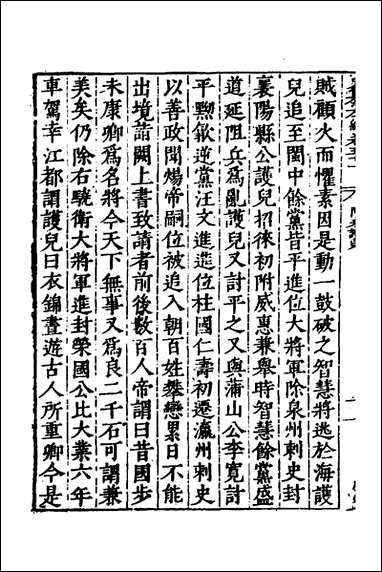 賊顧火而懼素因是動一鼓破之智慧將逃於海護
兒追至閩中餘黨皆平進位大將軍除泉州刺史封
襄陽縣公護兒招徠初附威惠兼舉時智慧餘黨盛
道延阻兵為亂護兒又討平之又與蒲山公李寬討
平黟歙逆黨汪文進進位柱國仁壽初遷瀛州刺史
以善政聞煬帝嗣位被追入朝百姓攀戀累日不能
出境詣闕上書致請者前後數百人帝謂曰昔國步
未康卿為名將今天下無事又為良二千石可謂兼
美矣仍除右驍衛大將軍進封榮國公比大業六年
車駕幸江都謂護兒曰衣錦晝遊古人所重卿今是